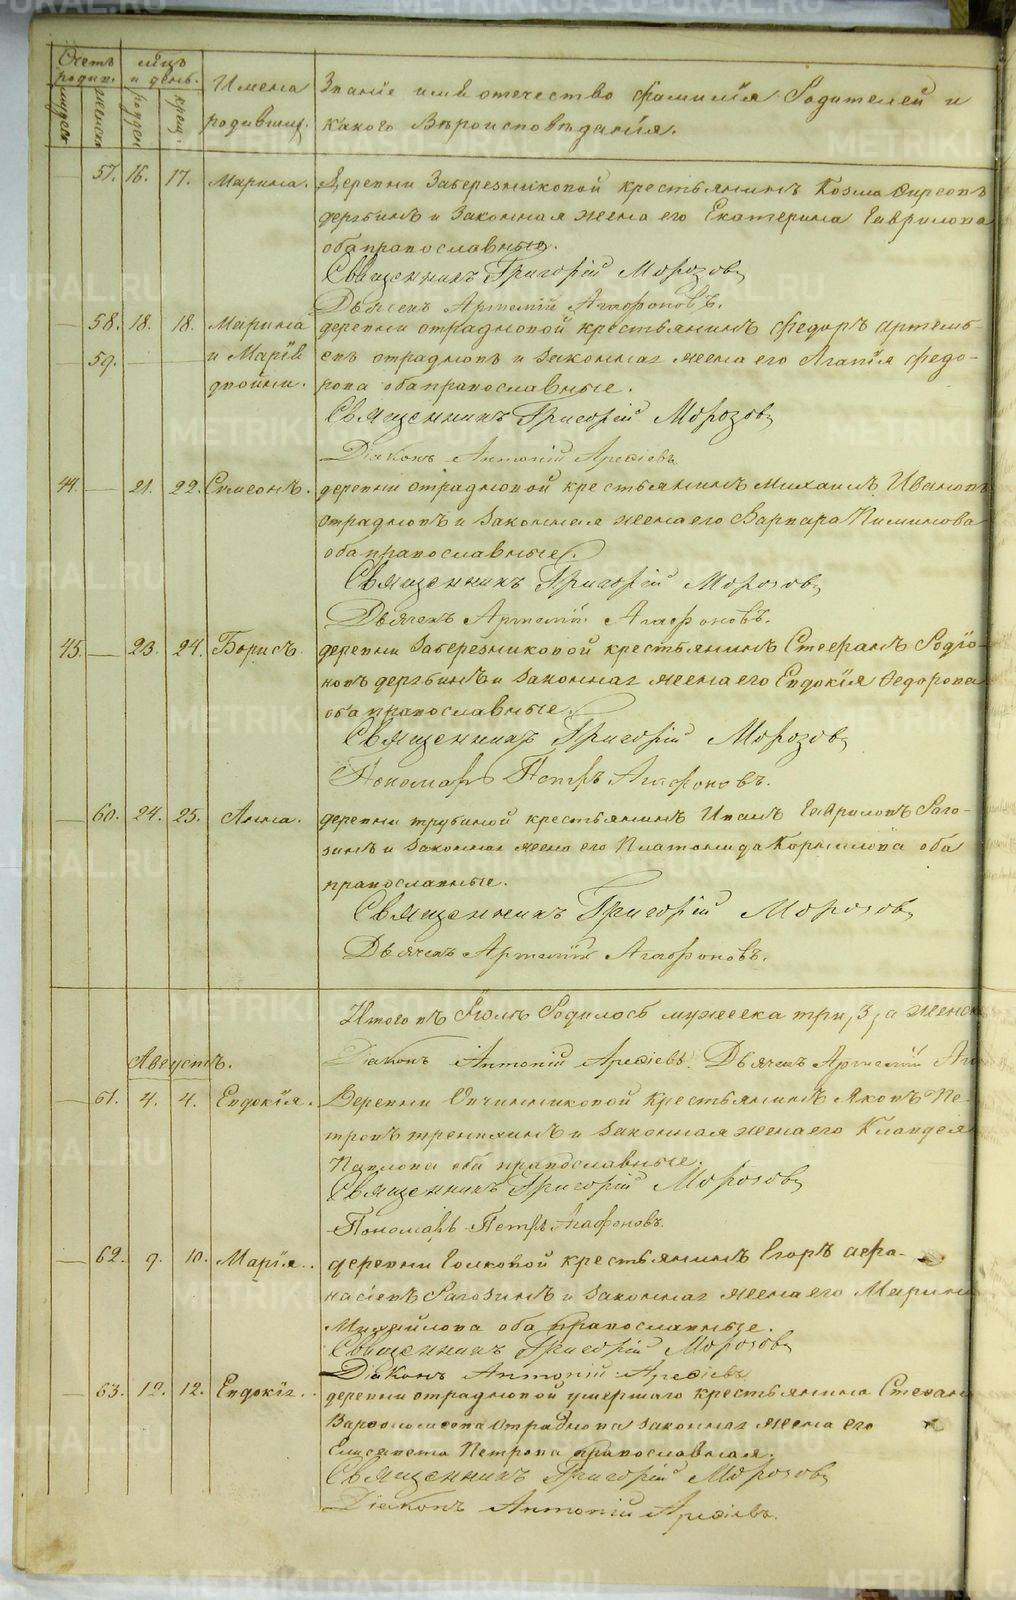 Счетъ родив. | мѣцъ и день. | Имена родивших. | Званіе имя отечество фамилія Родителей и
мужеск | женск | рожден | крещ. | какого Вѣроисповѣданія.
57. 16. 17. Марина. Деревни Заберезниковой крестьянинъ Козма
и Законная жена его Екатерина Гаврилова
оба православные.
Священникъ Григорій Морозовъ
Дьячекъ Артемій Агафоновъ.
58. 18. 18. Марина деревни отрадновой крестьянинъ федоръ артемь-
59. и Марія евъ отрадновъ и законная жена его Агапія федо-
двойни. рова оба православные.
Священникъ Григорій Морозовъ
Діаконъ Антоній Арефіевъ
44. 21. 22. Симеонъ. деревни отрадновой крестьянинъ Михаилъ Ивановъ
отрадновъ и Законная жена его Варвара Пиминова
оба православные.
Священникъ Григорій Морозовъ
Дьячекъ Артемій Агафоновъ.
45. 23. 24. Борисъ. деревни Заберезниковой крестьянинъ Стефанъ Родіо-
новъ дергбинъ и Законная жена его Евдокія Федорова
оба православные.
Священникъ Григорій Морозовъ
Пономарь Петръ Агафоновъ.
60. 24. 25. Анна. деревни трубиной крестьянинъ Иванъ Гавриловъ Раго-
зинъ и Законная жена его Платонида Корнилова оба
православные.
Священникъ Григорій Морозовъ
Дьячекъ Артемій Агафоновъ.
Итого въ Іюлѣ Родилось мужеска три, 3, а женск
Діаконъ Антоній Арефіевъ. Дьячекъ Артемій
Августъ.
61. 4. 4. Евдокія. Деревни Овчинниковой крестьянинъ Яковъ Пе-
тровъ тренихинъ и Законная жена его Клавдея
Павлова оба православные.
Священникъ Григорій Морозовъ
Пономарь Петръ Агафоновъ
62. 9. 10. Марія. деревни Голковой крестьянинъ Егоръ афа-
насіевъ Рагозинъ и Законная жена его Марина
Михайлова оба православные.
Священникъ Григорій Морозовъ
Діаконъ Антоній Арефіевъ
63. 12. 12. Евдокія. деревни отрадновой умершаго крестьянина Стефана
Варфоломеева Отраднова законная жена его
Елисавета Петрова православная.
Священникъ Григорій Морозовъ
Діаконъ Антоній Арефіевъ.
METRIKI.GASO-URAL.RU